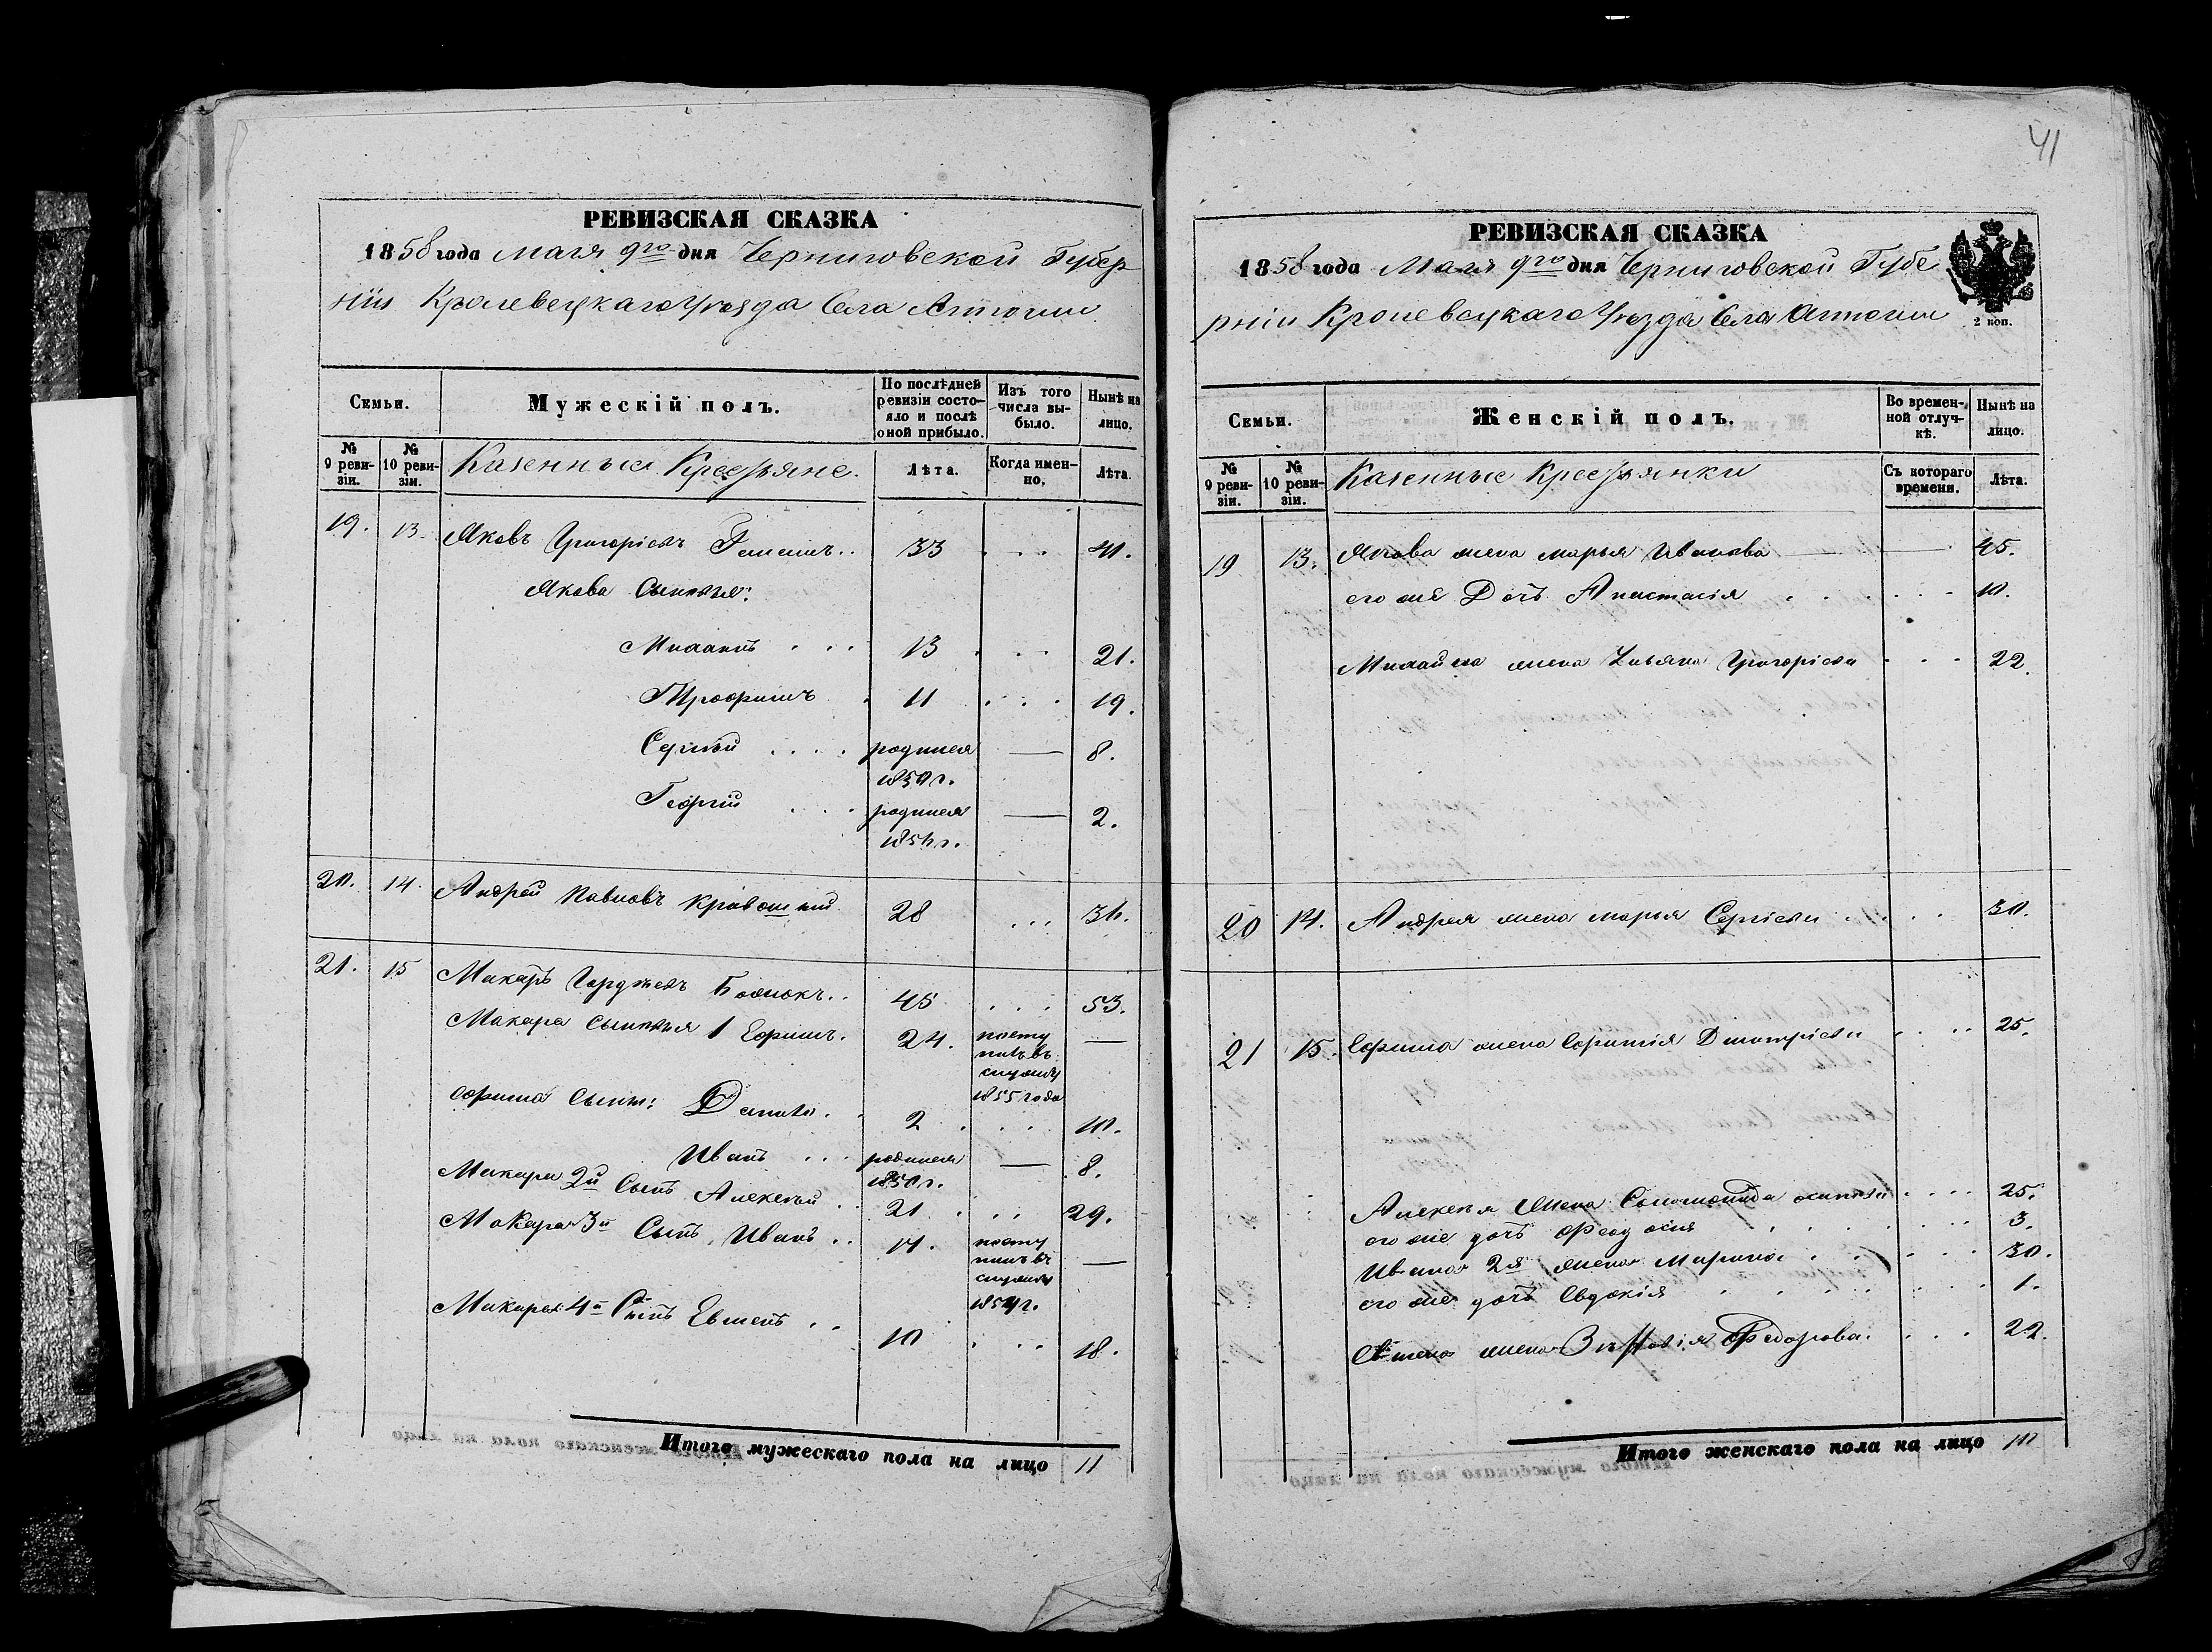 РЕВИЗСКАЯ СКАЗКА
1858 года Мая 9го дня Черниговской Губер
ніи Кролевецкаго Уѣзда Села
Семьи.
Мужескій полъ.
По послѣдней ревизіи состояло и послѣ оной прибыло.
Изъ того числа выбыло.
Нынѣ на лицо.
№ 9 ревизіи.
№ 10 ревизіи.
Казенные Крестьяне.
Лѣта.
Когда именно,
Лѣта.
19. 13. Яковъ Григоріевъ 33 . . . 41.
Якова Сыновья:
Михаилъ . . . 13 . . . 21.
Трофимъ . 11 . . . 19.
Сергѣй . . . . родился 1850 г. — 8.
Георгій . . . . родился 1856 г. — 2.
20. 14. Андрей Павловъ 28 . . . 36.
21. 15 Макаръ Гордѣевъ . . 45 . . . 53.
Макара Сыновья 1 Ефимъ. 24. поступилъ въ службу 1855 года —
Ефима Сыны: Данило . . 2 . . . 10.
Иванъ . . . родился 1850 г. — 8.
Макара 2й Сынъ Алексѣй . . 21 . . . 29.
Макара 3й Сынъ Иванъ . . поступилъ въ службу 1854 г. —
Макара 4й Сынъ . . 10 . . . 18.
Итого мужескаго пола на лицо 11
41
РЕВИЗСКАЯ СКАЗКА
1858 года Мая 9го дня Черниговской Губе
рніи Кролевецкаго Уѣзда Села
2 коп.
Семьи.
Женскій полъ.
Во временной отлучкѣ.
Нынѣ на лицо.
№ 9 ревизіи.
№ 10 ревизіи.
Казенные Крестьянки
Съ котораго времени.
Лѣта.
19 13. Якова жена Марья Иванова — — 45.
его же Дочь Анастасія . . . . . 10.
Михайла жена Ульяна Григоріева . . . 22.
20 14. Андрея жена Марья Сергіева . . . 30.
21 15. Ефима жена Евфимія Дмитріева . . . . 25.
Алексѣя Жена Соломонида . . . . 25.
его же дочь Феодосія . . . . . . 3.
Ивана 2я жена Марина . . . . . 30.
его же дочь Евдокія . . . . . . 1.
жена Зиновія Федорова. . . . 22.
Итого женскаго пола на лицо 10